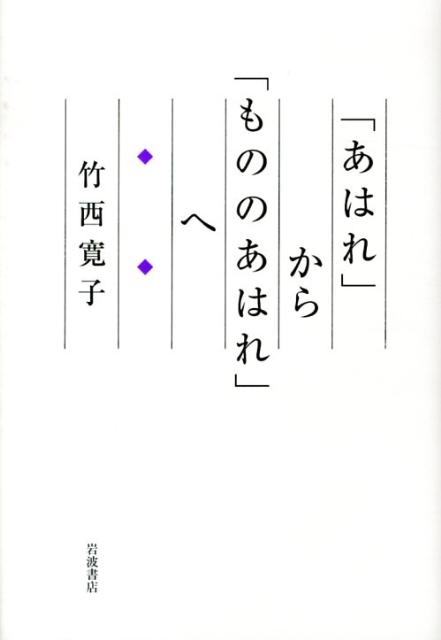 「あはれ」
から
「もののあはれ」
へ
竹西寛子
岩波書店